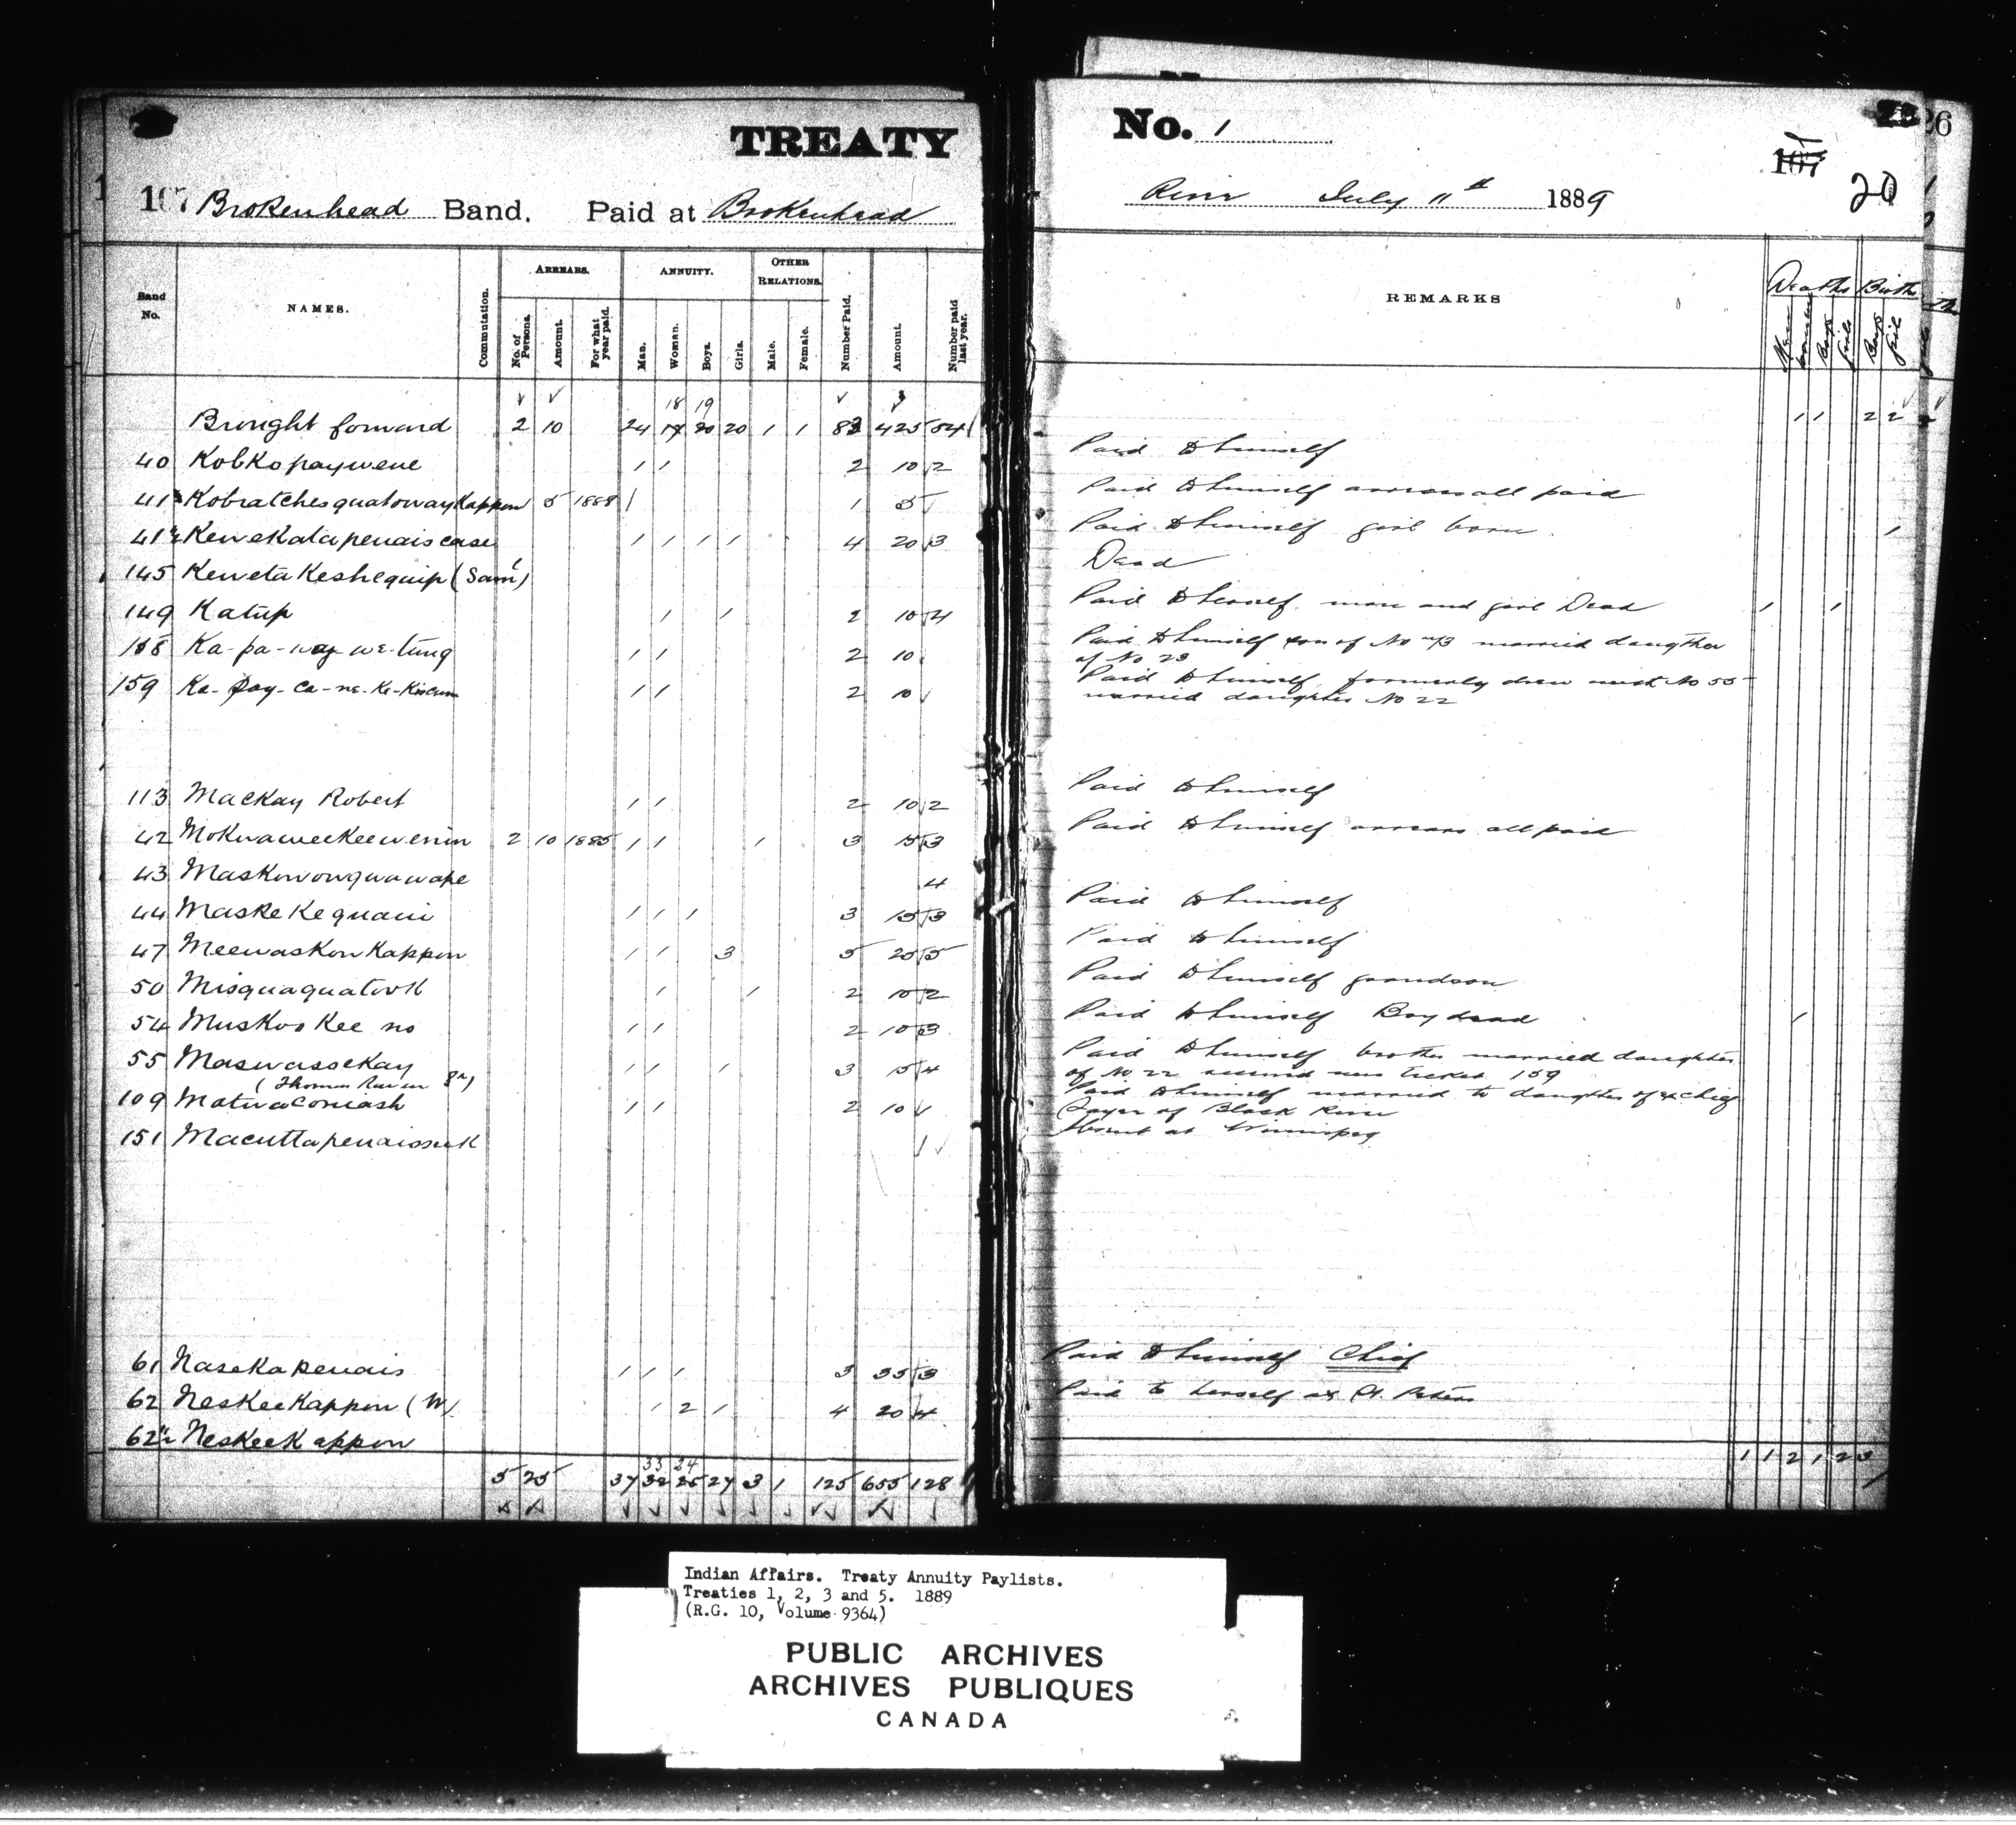 TREATY No. 1
107 Brokenhead Band. Paid at Brokenhead River July 11th 1889
107 20
26
Band No. NAMES. Commutation. ARREARS. No. of Persons. Amount. For what year paid. ANNUITY. Man. Woman. Boys. Girls. OTHER RELATIONS. Male. Female. Number Paid. Amount. Number paid last year. REMARKS Deaths Men women Boys Girls Births Boys Girls
18 19
Brought forward 2 10 24 17 20 20 1 1 83 425 84 1 1 2 2
40 Kobkopaywene 1 1 2 10 2 Paid to himself
41½ Kobratchesquatowaykappon 5 1888 1 1 5 Paid to himself arrears all paid
41½ Kewekatapenaiscase 1 1 1 1 4 20 3 Paid to himself girl born 1
145 Keweta Keshequip (Saml) Dead
149 Katup 1 1 2 10 4 Paid to herself man and girl Dead 1 1
158 Ka-pa-way-we-tung 1 1 2 10 Paid to himself son of No married daughter
of No 23
159 Ka-pay-ca-ne-ke-Kiscum 1 1 2 10 Paid to himself, formerly drew with No 55
married daughter No 22
113 Mackay Robert 1 1 2 10 2 Paid to himself
42 Mokwaweekeewenin 2 10 1885 1 1 1 3 15 3 Paid to himself arrears all paid
43 Maskowonguawape 4
44 Maskekequani 1 1 1 3 15 3 Paid to himself
47 Meewaskonkappon 1 1 3 5 25 5 Paid to himself
50 Misquaquatook 1 1 2 10 2 Paid to himself grandson
54 Muskookee no 1 1 2 10 3 Paid to himself Boy dead 1
55 Maswassekay 1 1 1 3 15 4 Paid to himself brother married daughter
(Thomas Raven Sr) of No 22 received new ticket 159
109 Matwaconiash 1 1 2 10 Paid to himself married to daughter of ex chief
of Black River
151 Macuttapenaissuk 1 Absent at Winnipeg
61 Nasekapenais 1 1 1 3 35 3 Paid to himself Chief
62 Neskeekappon (W) 1 2 1 4 20 4 Paid to herself at St. Peters
62½ Neskeekappon
33 24
5 25 37 32 25 27 3 1 125 655 128 1 1 2 1 2 3
Indian Affairs. Treaty Annuity Paylists.
Treaties 1, 2, 3 and 5. 1889
(R.G. 10, Volume 9364)
PUBLIC ARCHIVES
ARCHIVES PUBLIQUES
CANADA